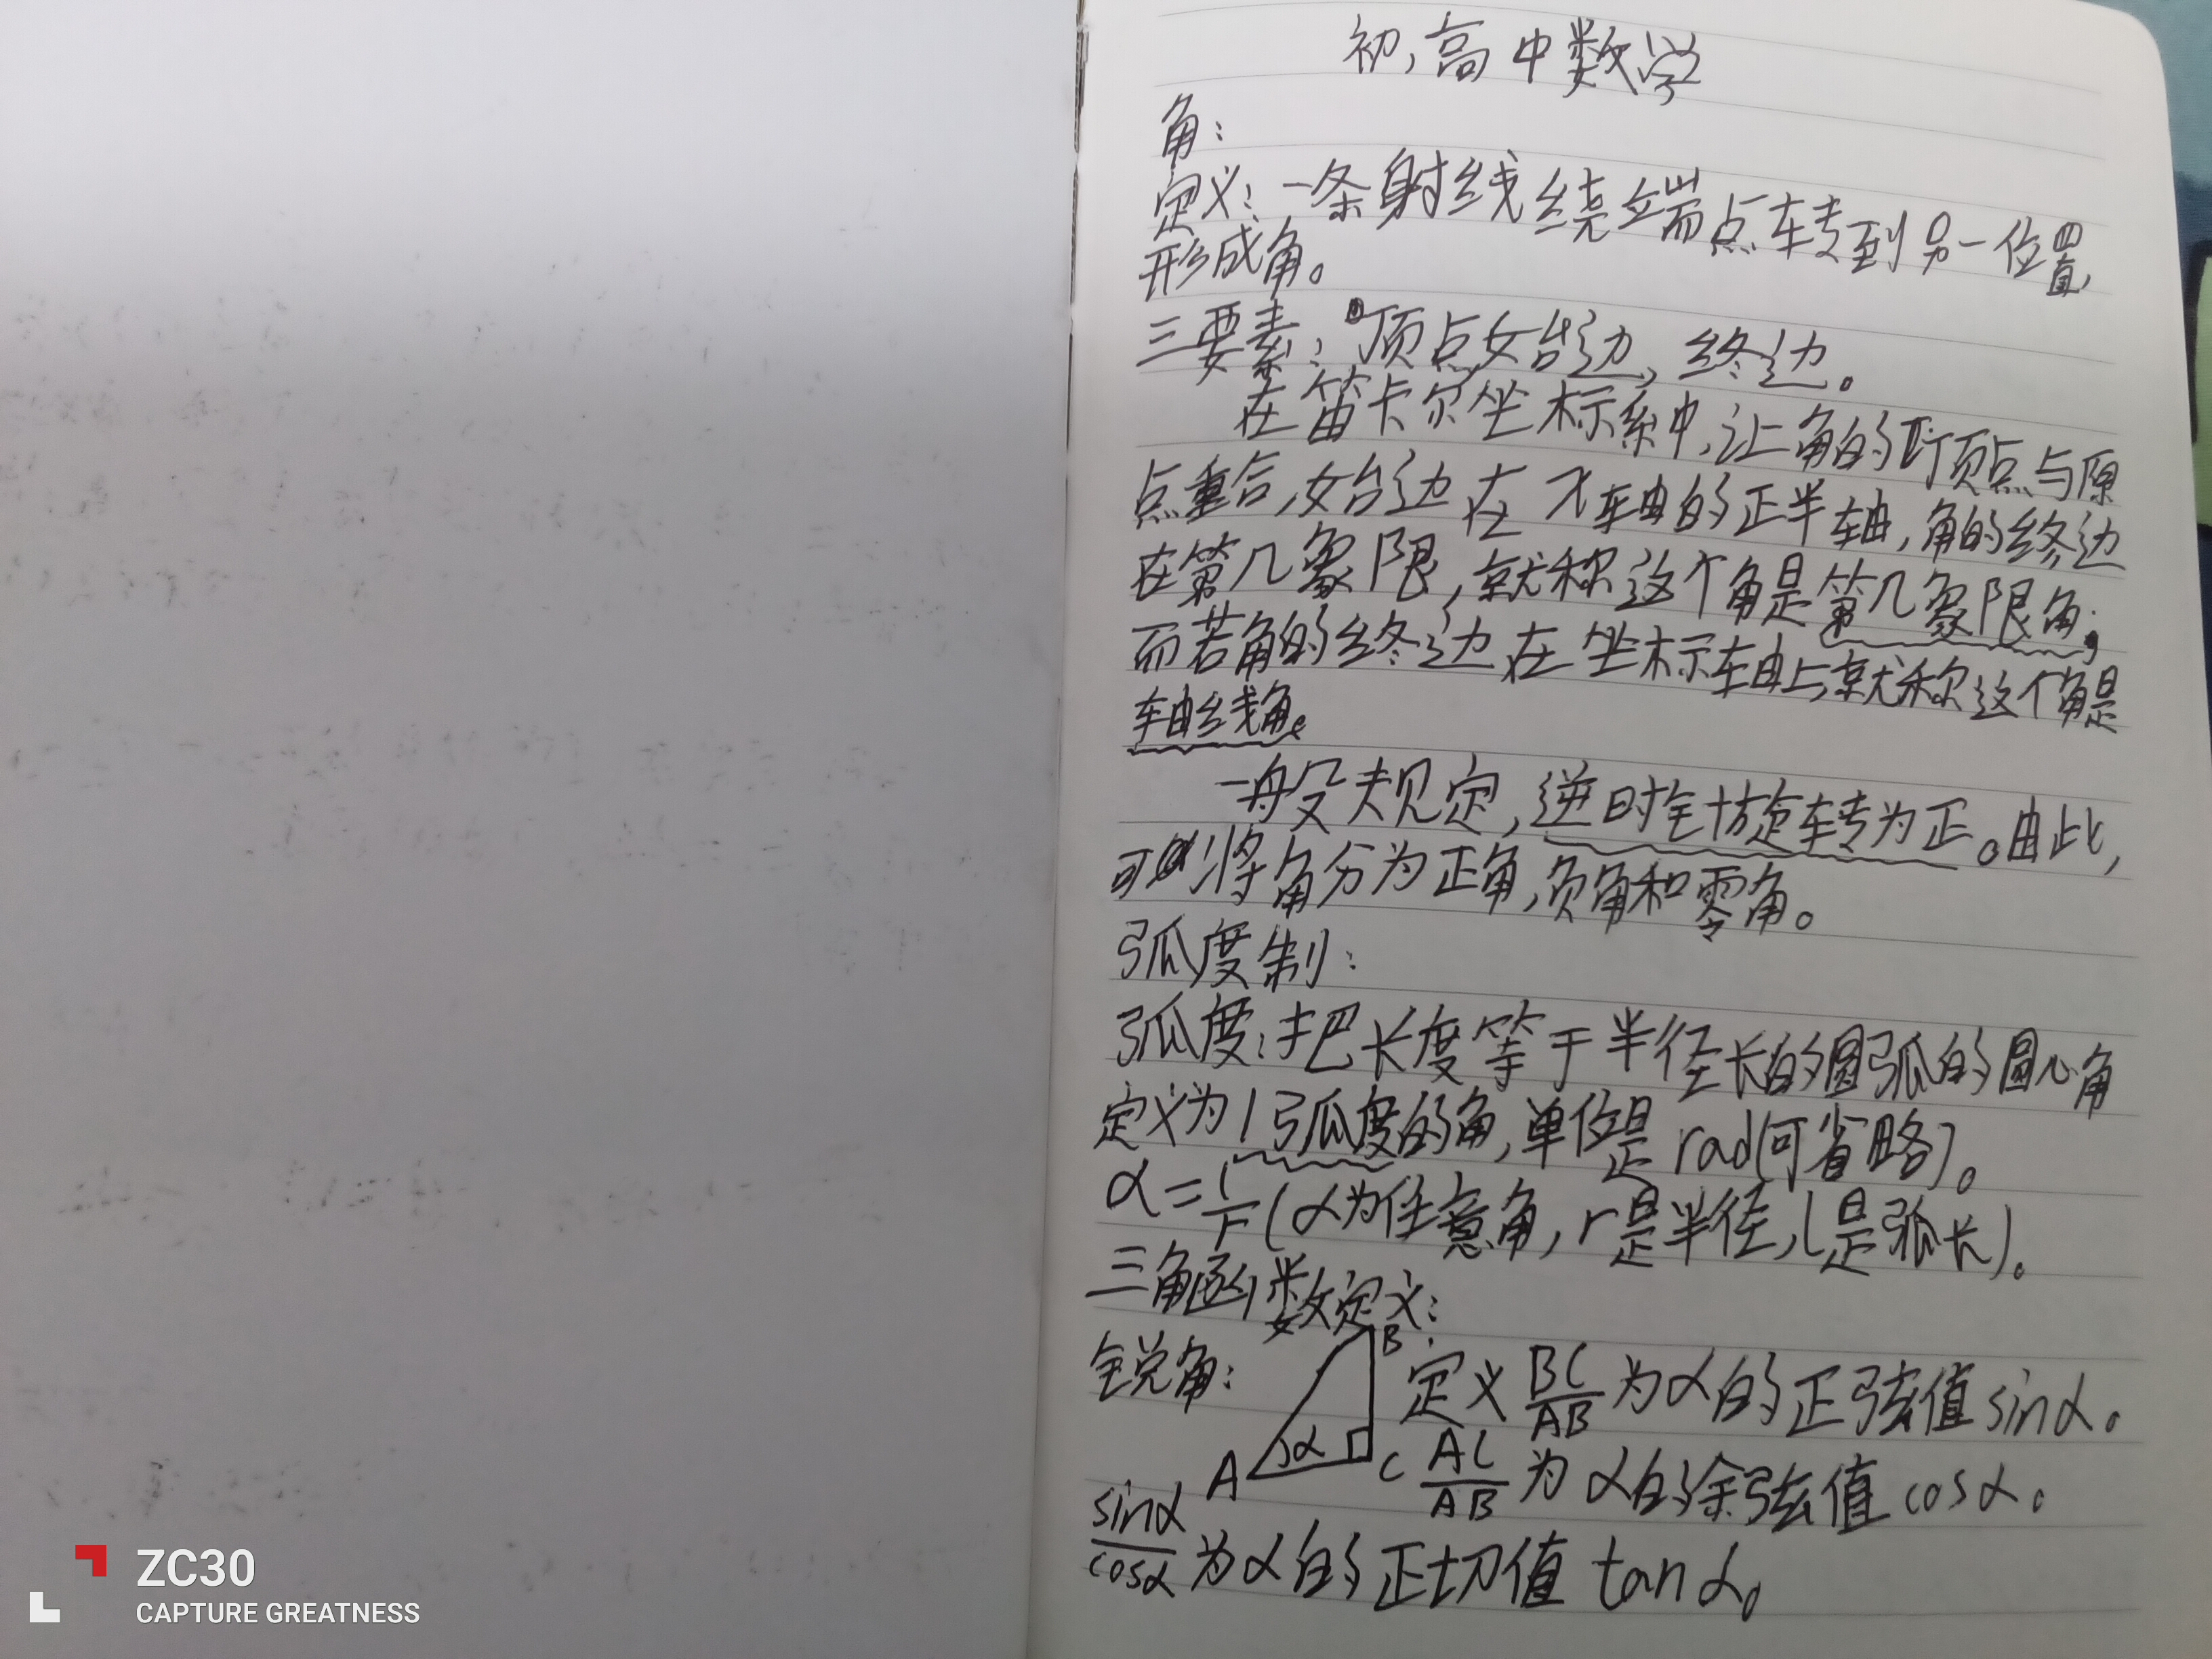 初,高中数学
角:
定义:一条射线绕端点转到另一位置,
形成角。
三要素:顶点,始边,终边。
在笛卡尔坐标系中,让角的顶点与原
点重合,始边在x轴的正半轴,角的终边
在第几象限,就称这个角是第几象限角;
而若角的终边在坐标轴上,就称这个角是
轴线角。
一般规定,逆时针旋转为正。由此,
可以将角分为正角,负角和零角。
弧度制:
弧度:把长度等于半径长的圆弧的圆心角
定义为1弧度的角,单位是rad(可省略)。
α=l/r(α为任意角,r是半径,l是弧长)。
三角函数定义:
B
锐角: 定义BC/AB为α的正弦值sinα。
A α C AC/AB为α的余弦值cosα。
sinα/cosα为α的正切值tanα。
ZC30
CAPTURE GREATNESS